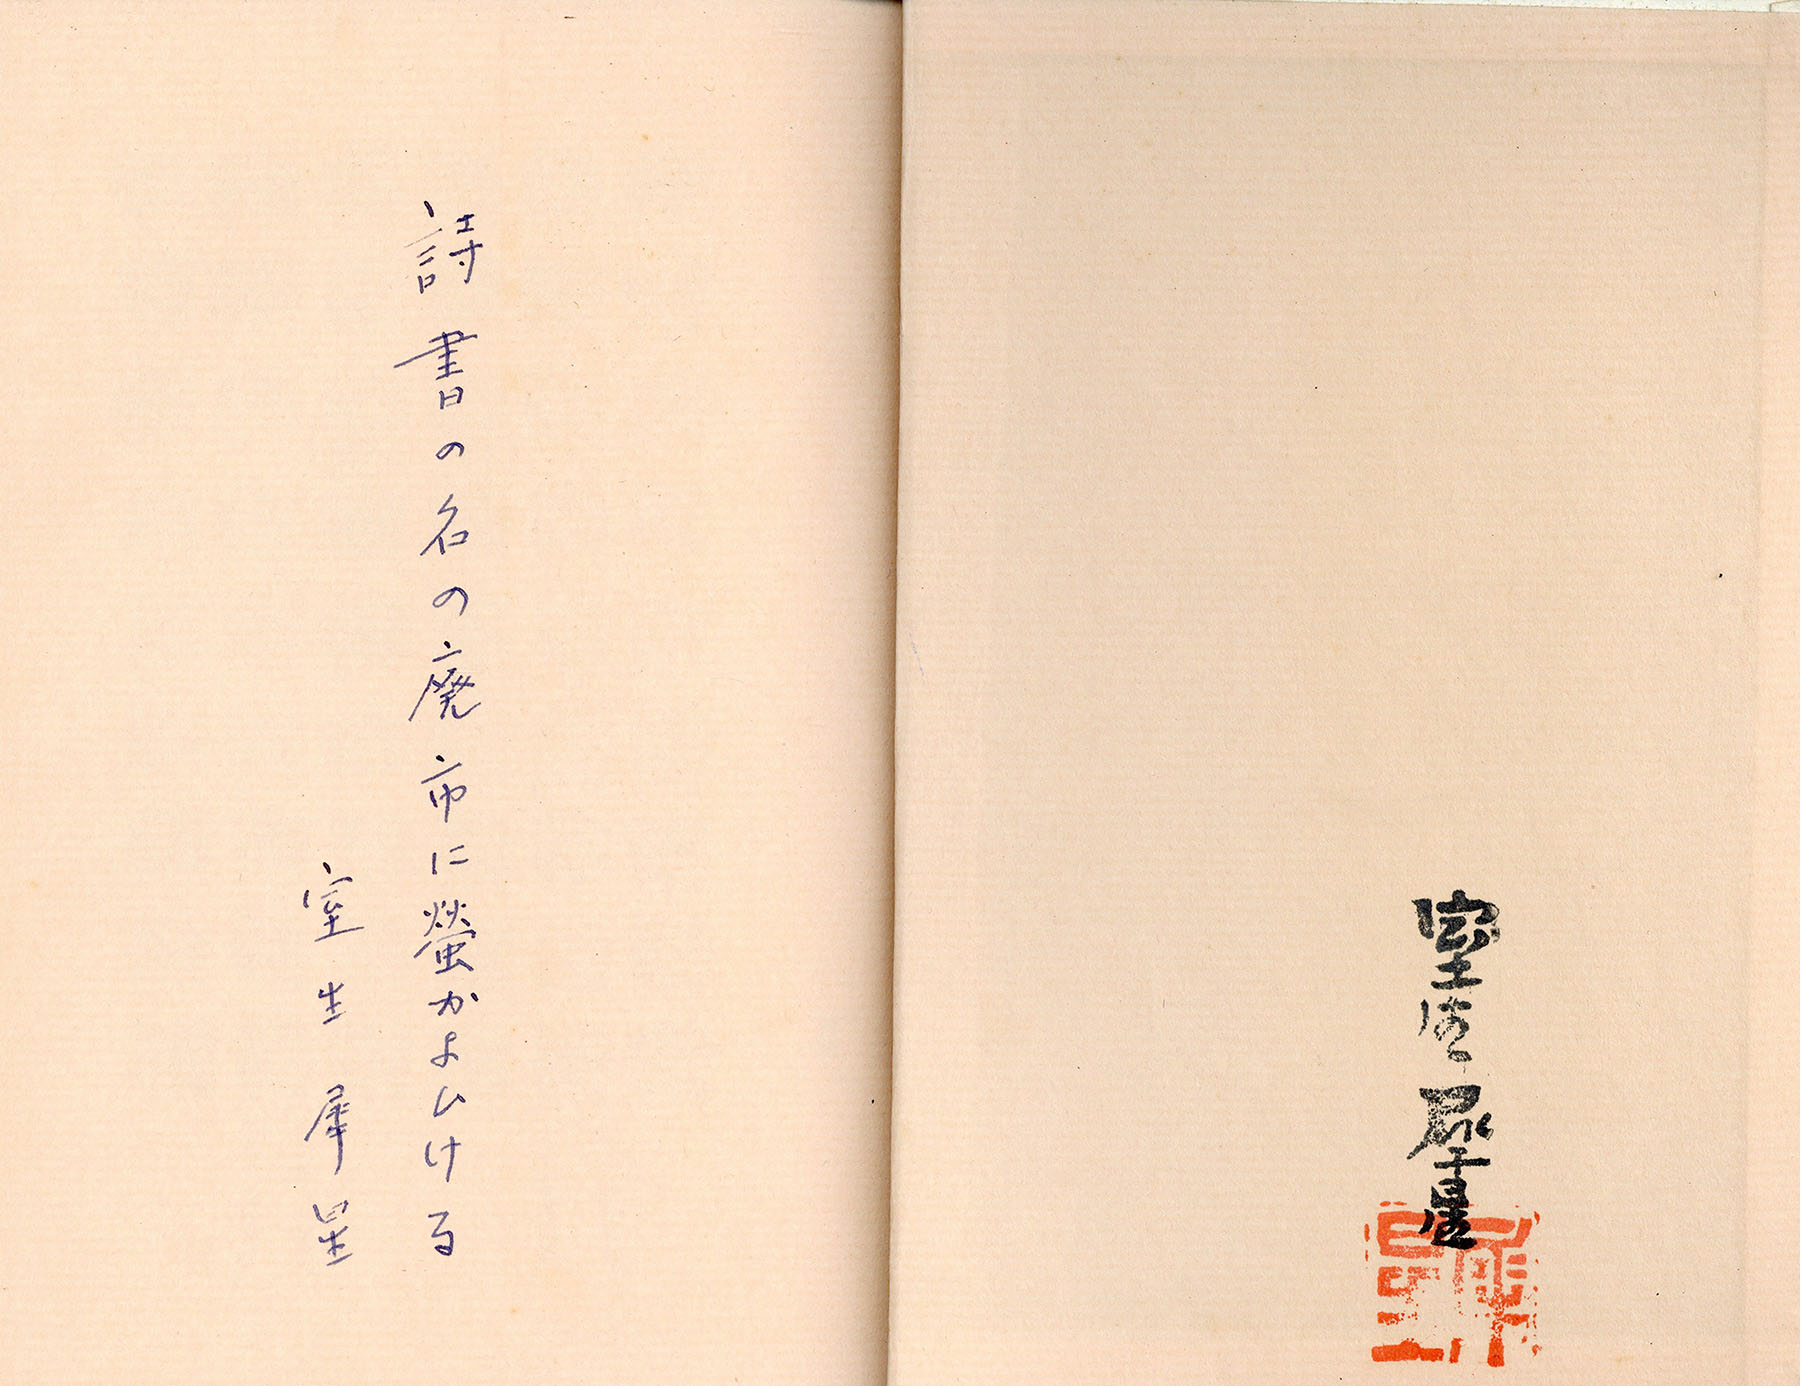 室生犀星
犀星
詩書の名の廃市に螢かよひける
室生犀星